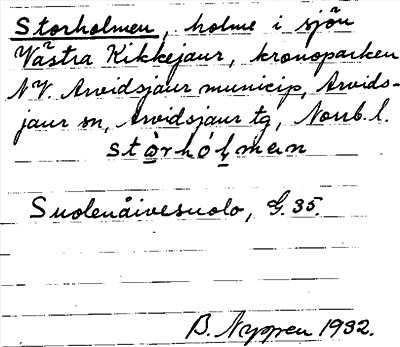 Storholmen, holme i sjön
Västra Kikkejaur, kronoparken
NV. Arvidsjaur municip, Arvids-
jaur sn, Arvidsjaur tg, Norrb. l.
stòrhólmen
Suolenåivesuolo, G. 35.
B. Nyppen 1932.